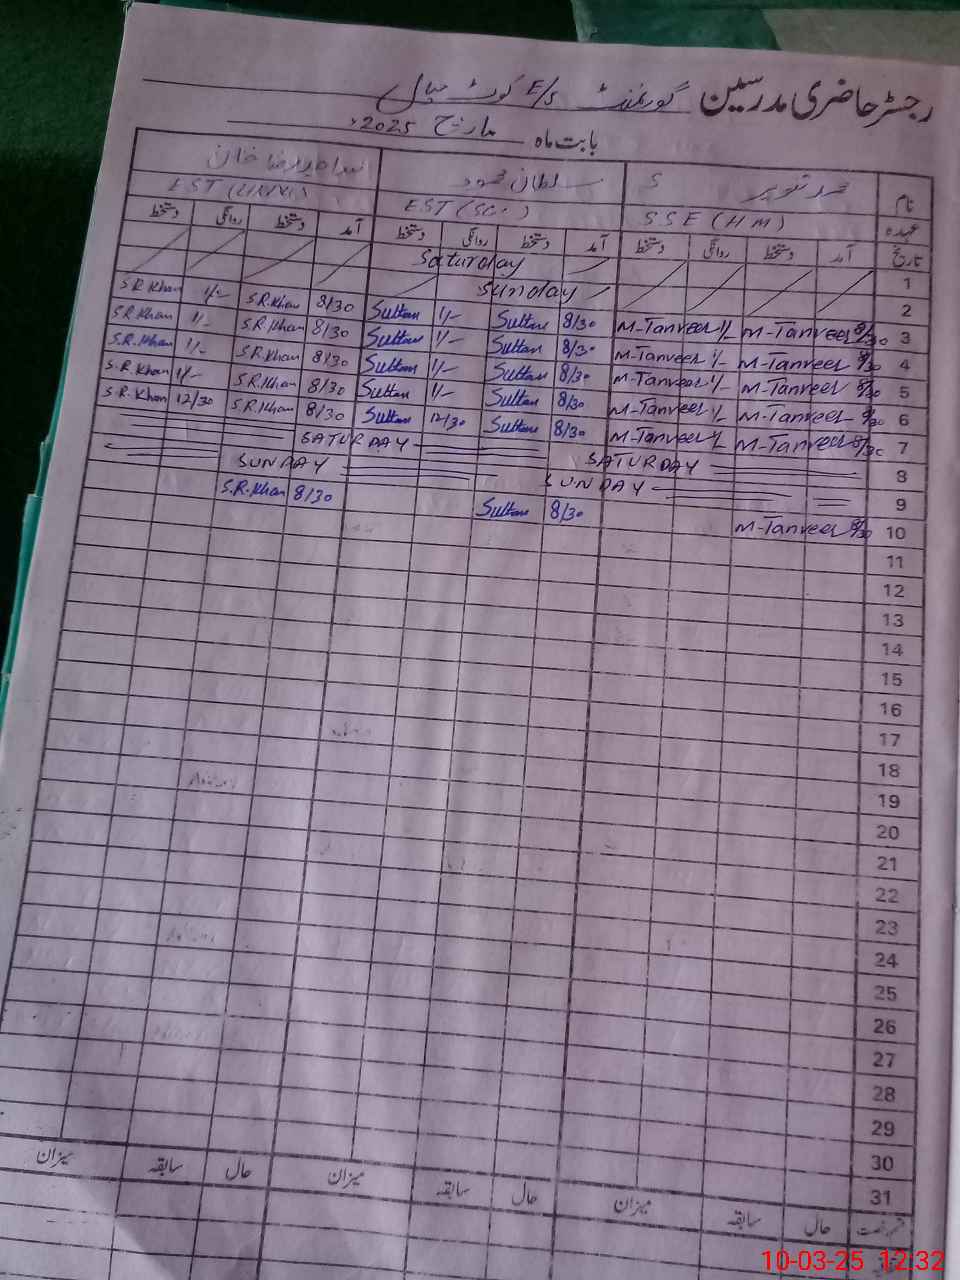 رجسٹر حاضری مدرسین گورنمنٹ E/S کوٹ
بابت ماہ مارچ 2025ء
نام محمد تنویر سلطان محمود رضا خان
عہدہ SSE (HM) EST (SCI) EST
تاریخ آمد دستخط روانگی دستخط آمد دستخط روانگی دستخط آمد دستخط روانگی دستخط
1 Saturday
2 Sunday
3 8/30 M-Tanveer 1/- M-Tanveer 8/30 Sultan 1/- Sultan 8/30 S.R.Khan 1/- S.R.Khan
4 8/30 M-Tanveer 1/- M-Tanveer 8/30 Sultan 1/- Sultan 8/30 S.R.Khan 1/- S.R.Khan
5 8/30 M-Tanveer 1/- M-Tanveer 8/30 Sultan 1/- Sultan 8/30 S.R.Khan 1/- S.R.Khan
6 8/30 M-Tanveer 1/- M-Tanveer 8/30 Sultan 1/- Sultan 8/30 S.R.Khan 1/- S.R.Khan
7 8/30 M-Tanveer 1/- M-Tanveer 8/30 Sultan 12/30 Sultan 8/30 S.R.Khan 12/30 S.R.Khan
8 SATURDAY SATURDAY
9 SUNDAY SUNDAY
10 8/30 M-Tanveer 8/30 Sultan 8/30 S.R.Khan
11
12
13
14
15
16
17
18
19
20
21
22
23
24
25
26
27
28
29
30
31
حال سابقہ میزان حال سابقہ میزان حال سابقہ میزان
10-03-25 12:32